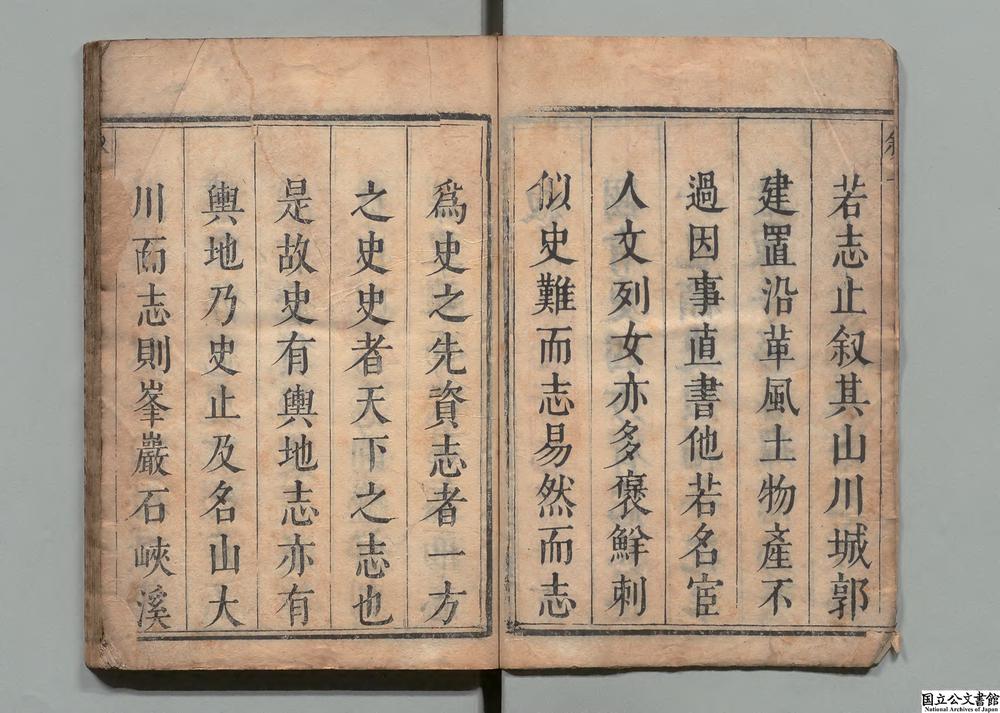 若志止叙其山川城郭
建置沿革風土物產不
過因事直書他若名宦
人文列女亦多褒鮮刺
似史難而志易然而志
爲史之先資志者一方
之史史者天下之志也
是故史有輿地志亦有
輿地乃史止及名山大
川而志則峯巖石峽溪
国立公文書館
National Archives of Japan